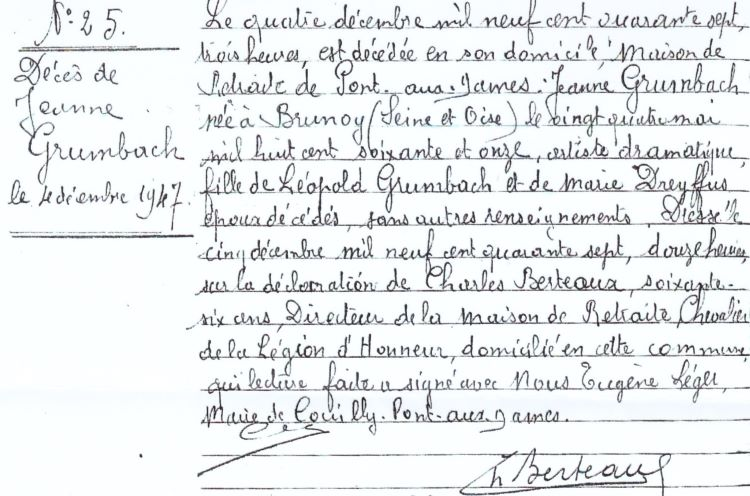 N° 25.
Décès de
Jeanne
Grumbach
le 4 décembre 1947.
Le quatre décembre mil neuf cent quarante sept,
trois heures, est décédée en son domicile, Maison de
Retraite de Pont-aux-Dames: Jeanne Grumbach
née à Brunoy (Seine et Oise) le vingt quatre mai
mil huit cent soixante et onze, artiste dramatique,
fille de Léopold Grumbach et de Marie Dreyfus
époux décédés, sans autres renseignements. Dressé le
cinq décembre mil neuf cent quarante sept, douze heures,
sur la déclaration de Charles Berteaux, soixante-
six ans, Directeur de la Maison de Retraite, Chevalier
de la Légion d'Honneur, domicilié en cette commune,
qui lecture faite a signé avec Nous Eugène Léger,
Maire de Couilly-Pont-aux-Dames.
Ch Berteaux